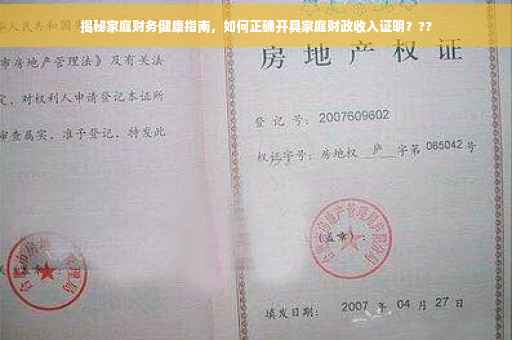 揭秘家庭财务健康指南，如何正确开具家庭财政收入证明？??
华人民共和国
市房地产管理法》及有关法
定，对权利人申请登记本证所
审查属实，准予登记，特发此
房地产权
登记号：2007609602
权证字号：房地权 庐 字第 085042 号
(盖章)：
填发日期：2007 年 04 月 27 日